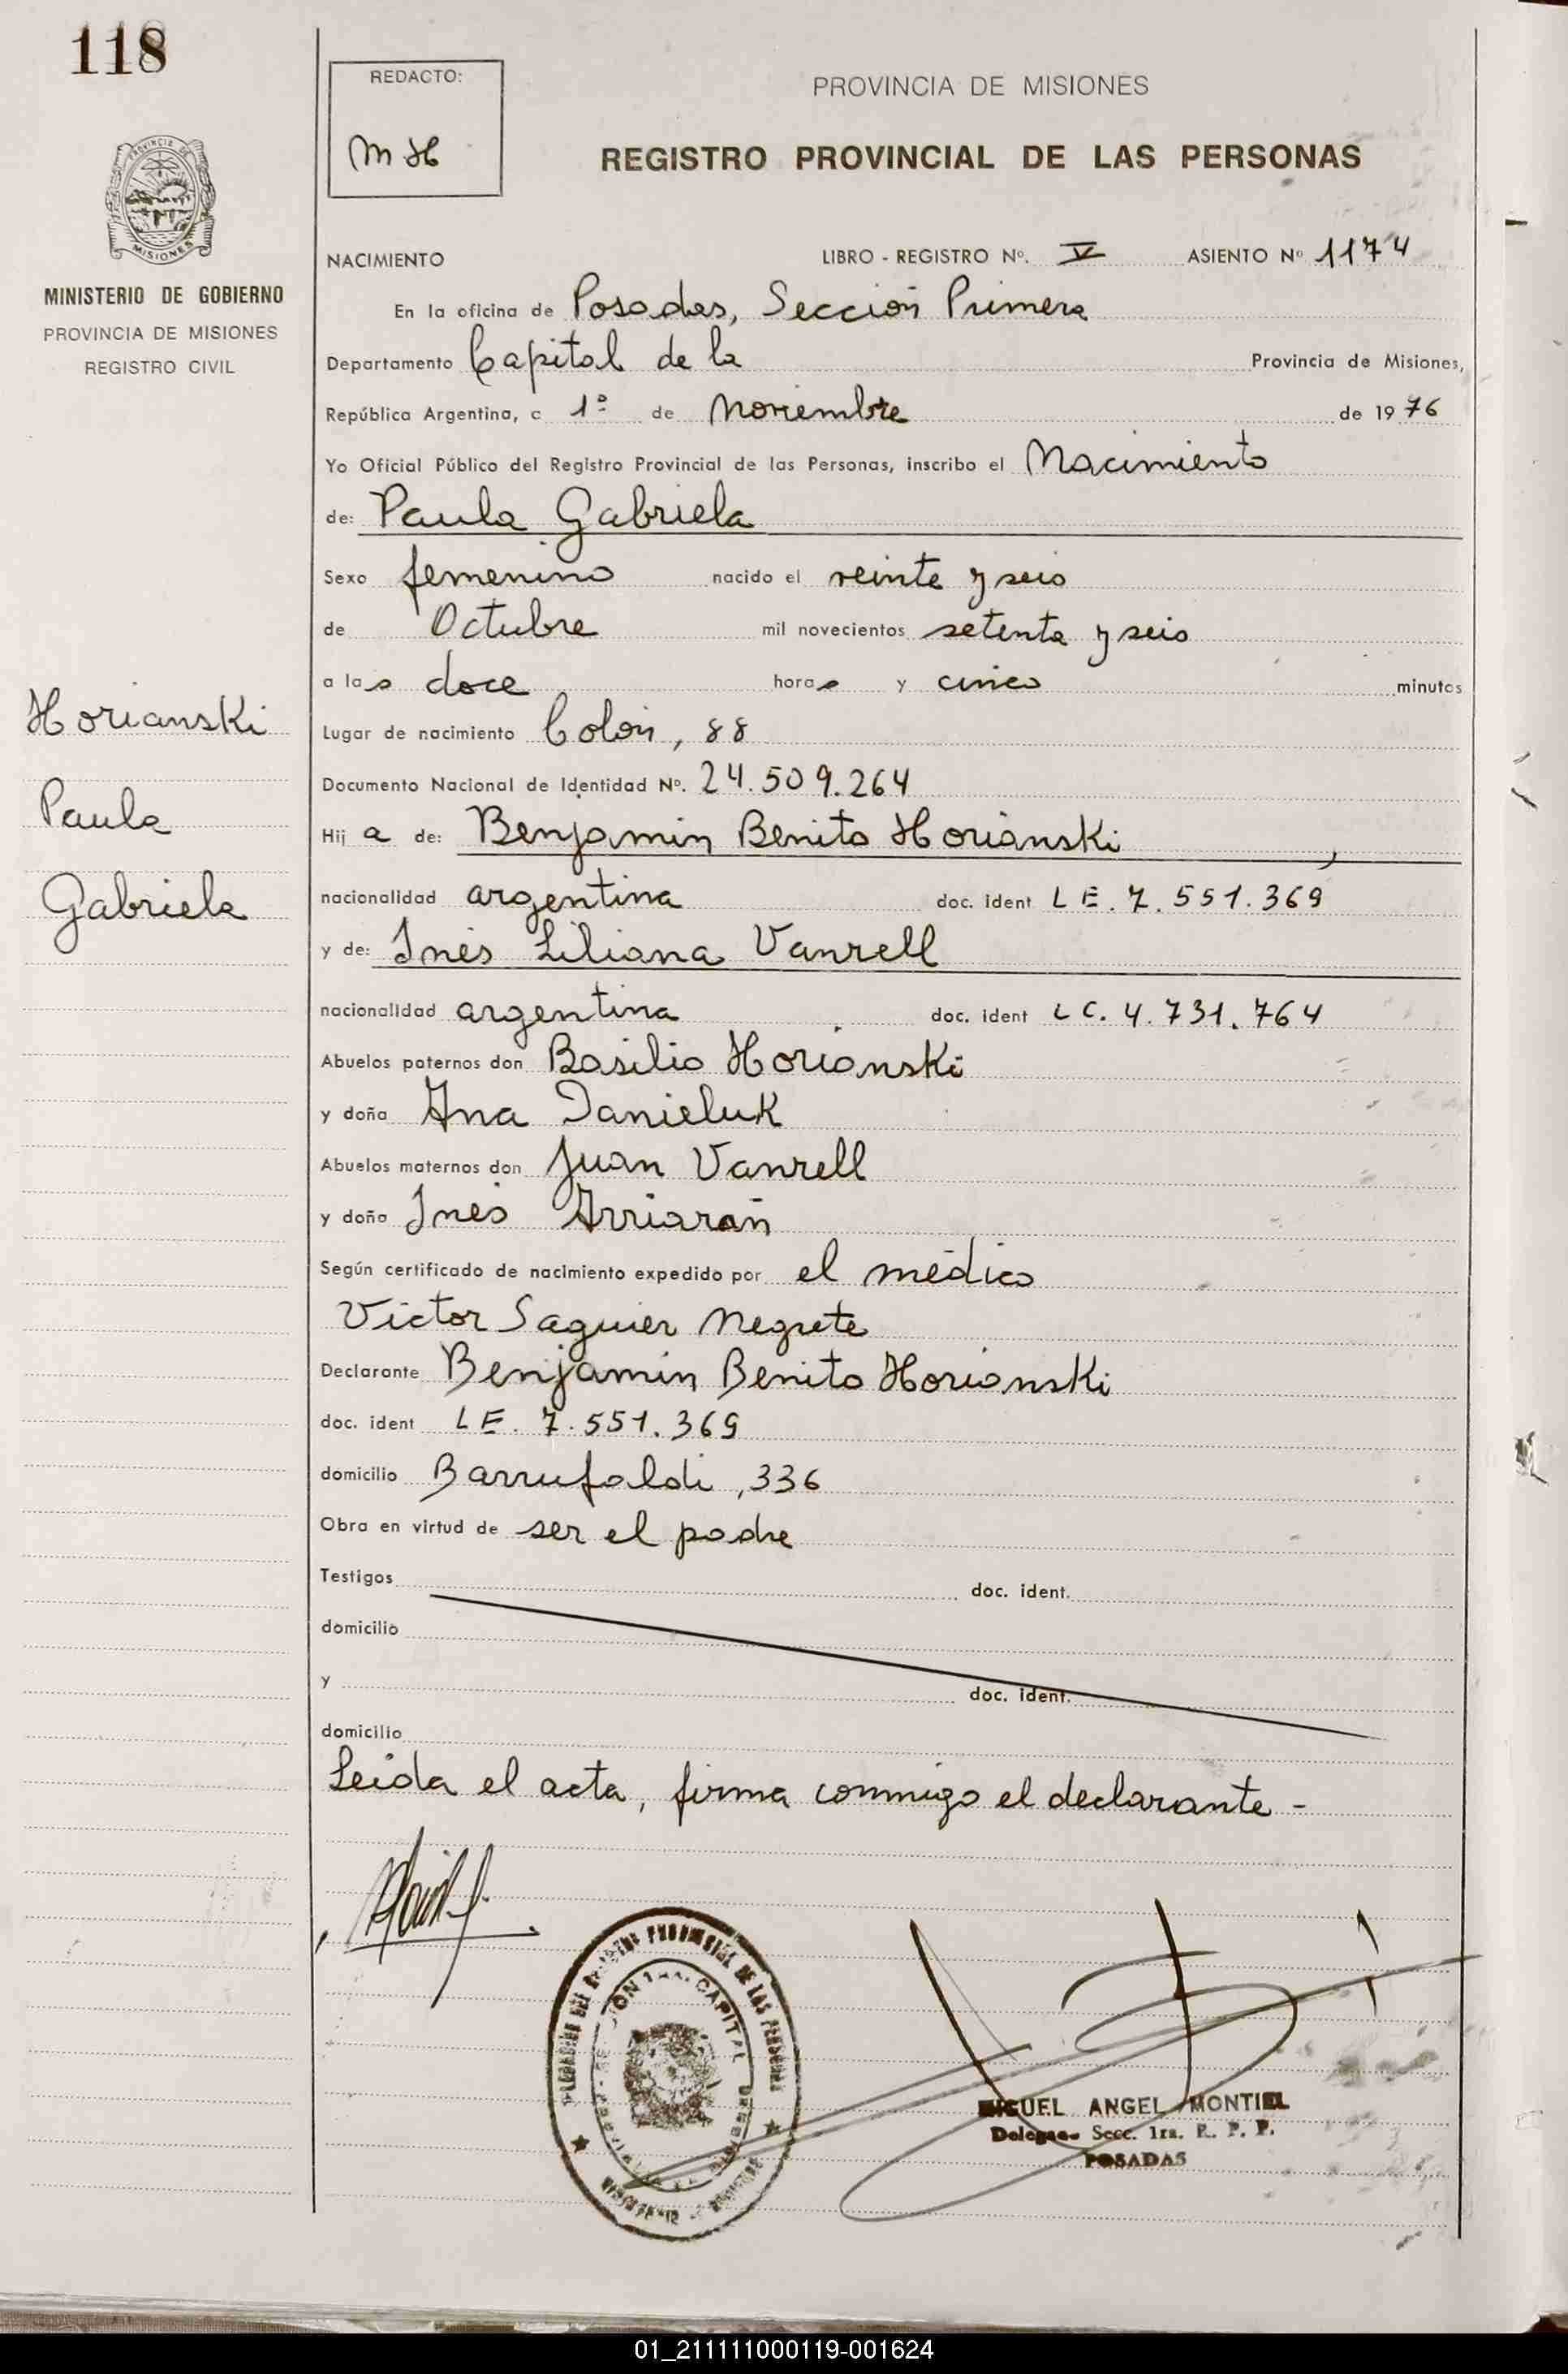 118
REDACTO:
M H
PROVINCIA DE MISIONES
REGISTRO PROVINCIAL DE LAS PERSONAS
MISIONES
MINISTERIO DE GOBIERNO
PROVINCIA DE MISIONES
REGISTRO CIVIL
NACIMIENTO LIBRO - REGISTRO Nº. V ASIENTO Nº 1174
En la oficina de Posadas, Sección Primera
Departamento Capital de la Provincia de Misiones,
República Argentina, a 1º de Noviembre de 1976
Yo Oficial Público del Registro Provincial de las Personas, inscribo el Nacimiento
de: Paula Gabriela
Sexo femenino nacido el veinte y seis
de Octubre mil novecientos setenta y seis
a las doce horas y cinco minutos
Horianski
Paula
Gabriela
Lugar de nacimiento Colón, 88
Documento Nacional de Identidad Nº. 24.509.264
Hija de: Benjamin Benito Horianski,
nacionalidad argentina doc. ident LE. 7.551.369
y de: Inés Liliana Vanrell
nacionalidad argentina doc. ident LC. 4.731.764
Abuelos paternos don Basilio Horianski
y doña Ana Danieluk
Abuelos maternos don Juan Vanrell
y doña Inés Arriarán
Según certificado de nacimiento expedido por el médico
Victor Saguier Negrete
Declarante Benjamin Benito Horianski
doc. ident LE. 7.551.369
domicilio Barrufaldi, 336
Obra en virtud de ser el padre
Testigos doc. ident.
domicilio
y doc. ident.
domicilio
Leida el acta, firma conmigo el declarante -
PROVINCIAL DE LAS PERSONAS
CAPITAL
MIGUEL ANGEL MONTIEL
Secc. 1ra. R. P. P.
POSADAS
01_211111000119-001624